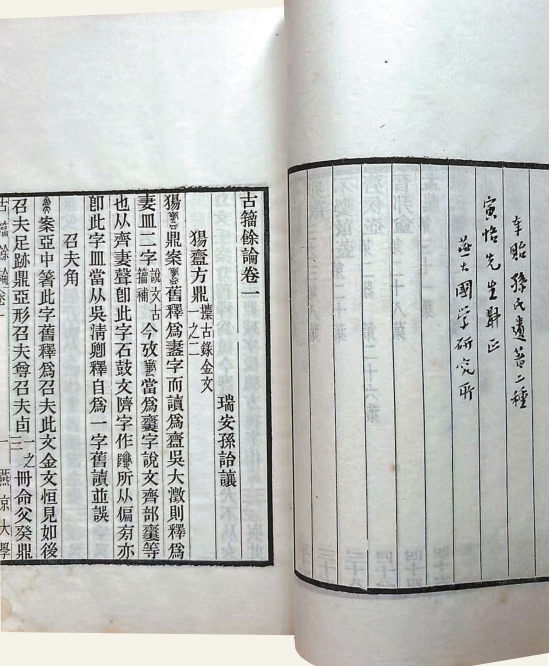 奉貽 孫氏遺著二種
寅恪先生斠正
燕大國学研究所
古籀餘論卷一
瑞安孫詒讓
方鼎 攈古錄金文一之二
鼎案舊釋爲字而讀爲齍吳大澂則釋爲
妻皿二字說文古籀補今攷當爲字說文齊部等
也从齊妻聲卽此字石鼓文隮字作所从偏㫄亦
卽此字皿當从吳清卿釋自爲一字舊讀並誤
召夫角
案亞中箸此字舊釋爲召夫此文金文恒見如後
召夫足跡鼎亞形召夫尊召夫卣一之三冊命父癸鼎
古籀餘論卷一 一 燕京大學